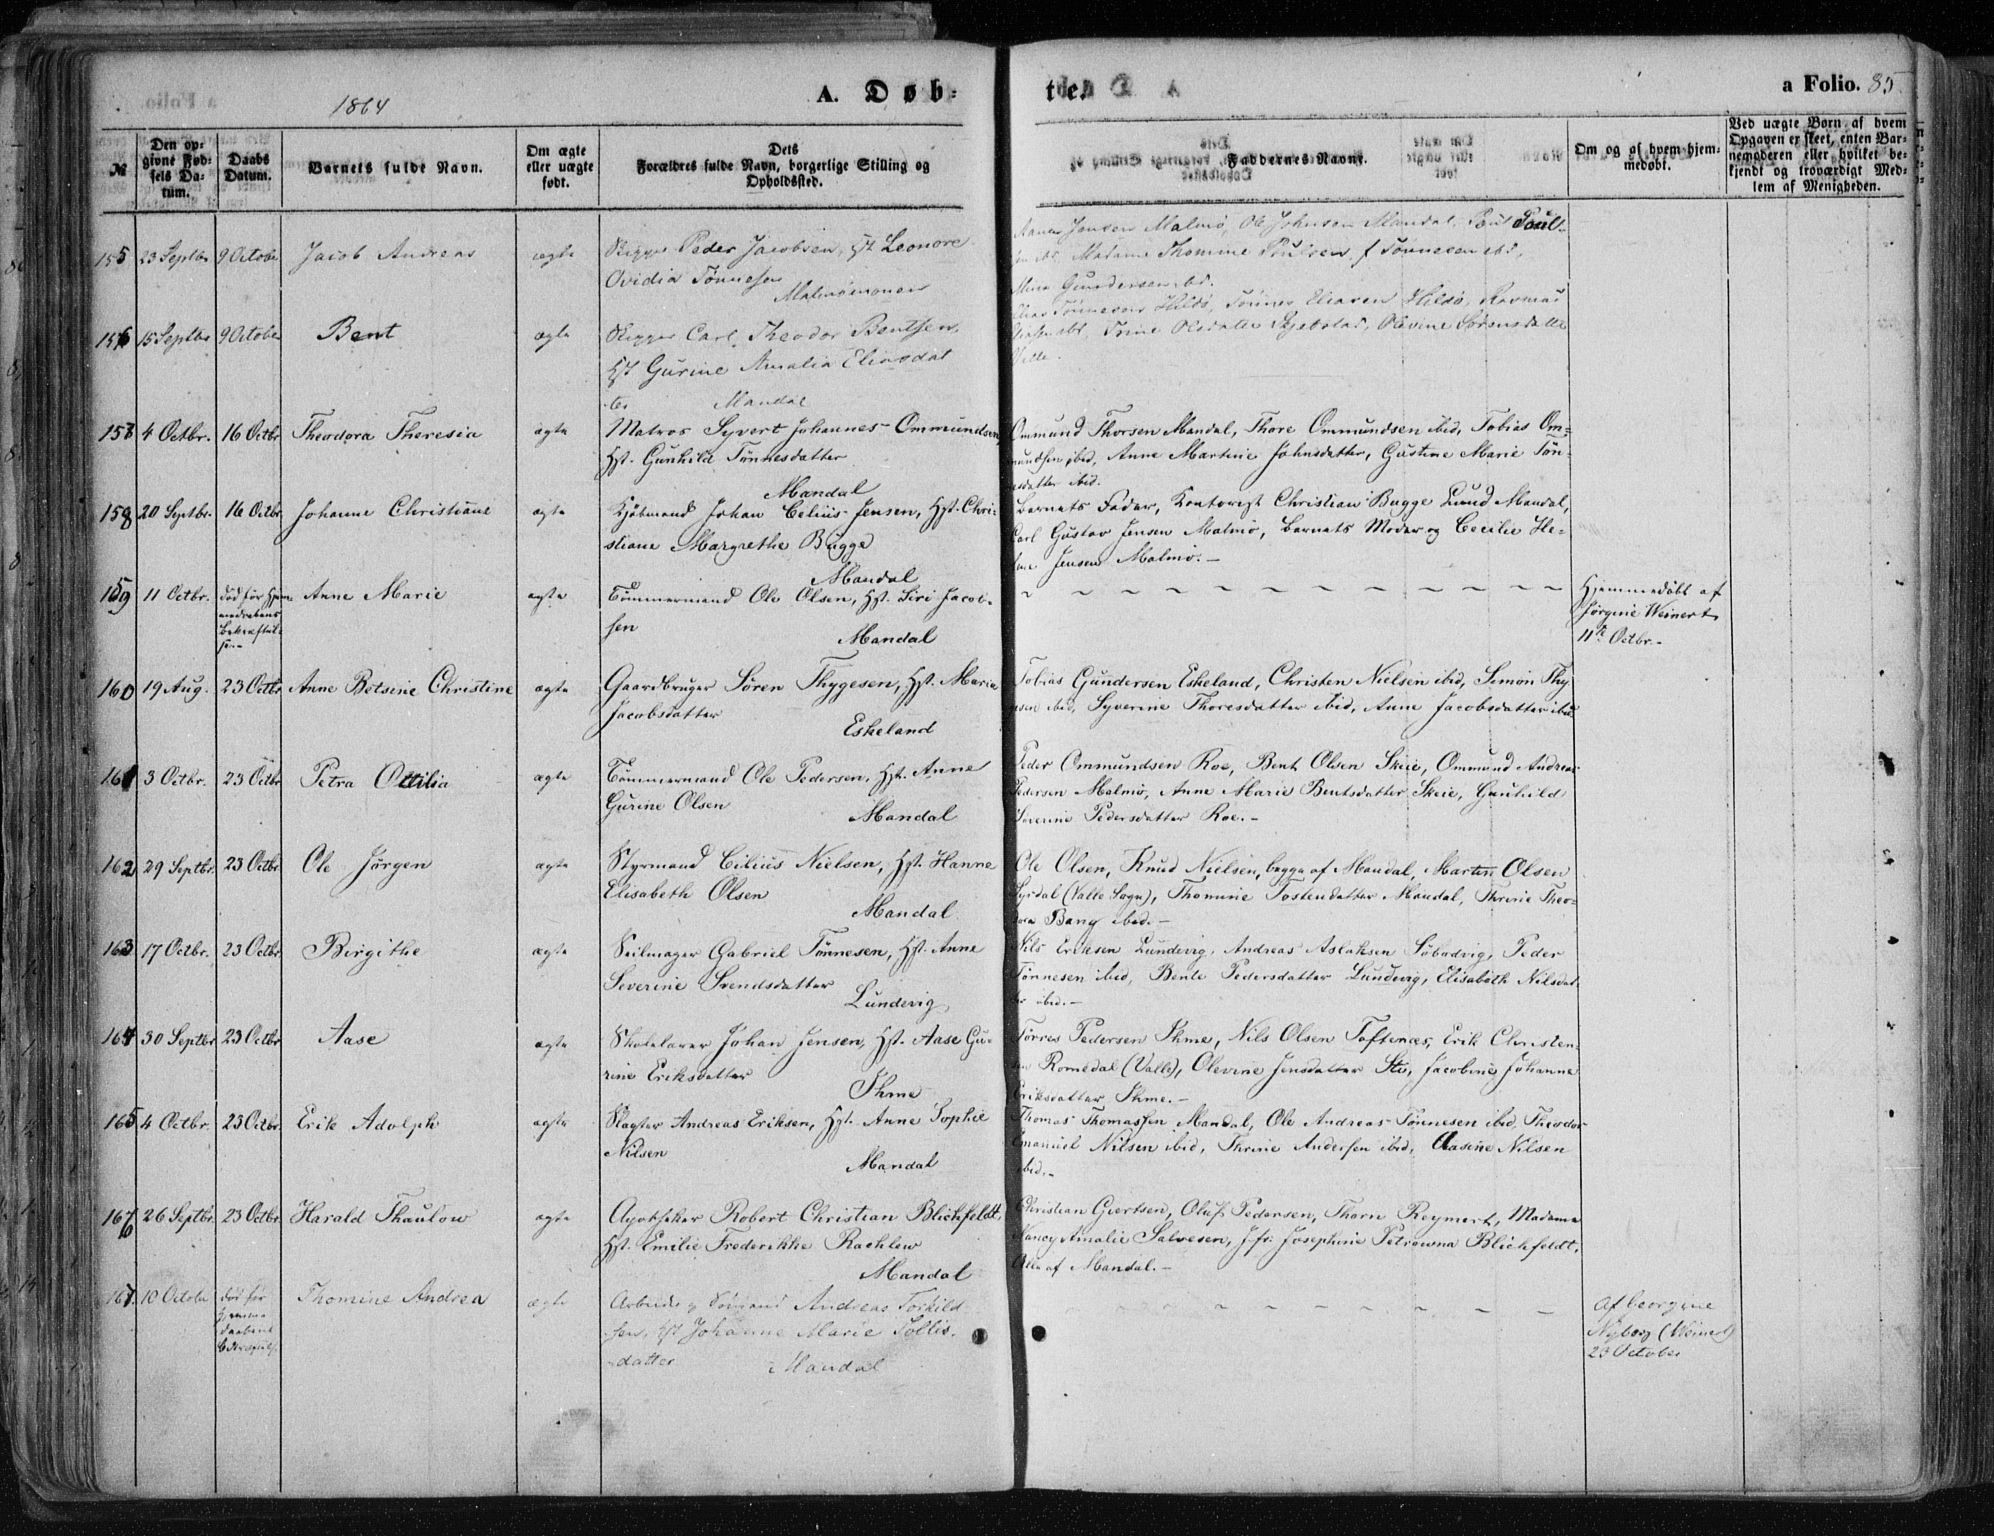 1864 A. Døb-
te. a Folio. 85
№
Den op-
givne Fød-
sels Da-
tum.
Daabs
Datum.
Barnets fulde Navn.
Om ægte
eller uægte
født.
Dets
Forældres fulde Navn, borgerlige Stilling og
Opholdssted.
Faddernes Navne.
Om og af hvem hjem-
medøbt.
Ved uægte Børn af hvem
Opgaven er skeet, enten Bar-
nemoderen eller hvilket be-
kjendt og troværdigt Med-
lem af Menigheden.
155 23 Septbr 9 October Jacob Andreas ægte Skipper Peder Jacobsen, Hst Leonore
Ovidia Tønnesen
Jensen Malmø, Ole Johnsen Mandal, Poul Poul-
Madame Thomine Poulsen, f Tønnesen ibd,
Gundersen ibd.
156 15 Septbr 9 October Bent ægte Skipper Carl Theodor Bentsen
Hst Gurine Amalia Eliasdat
ter Mandal
Tønnesen Hildø, Tønnes Eliasen Hildø, Rasmus
Trine Olsdatter Olevine Sørensdatter
157 4 Octbr. 16 Octbr Theodora Theresia ægte Matros Syvert Johannes Ommundsen,
Hst. Gunhild Tønnesdatter
Mandal
Ommund Thorsen Mandal, Thore Ommundsen ibid, Tobias Om-
mundsen ibid, Anne Martine Johnsdatter, Gustine Marie Tøn-
nesdatter ibid.
158 20 Septbr. 16 Octbr. Johanne Christiane ægte Kjøbmand Johan Celius Jensen, Hst. Chri-
stiane Margrethe Bugge
Mandal
Barnets Fader, Kontorist Christian Bugge Lund Mandal,
Carl Gustav Jensen Malmø, Barnets Moder og Cecilie He-
lene Jensen Malmø. -
159 11 Octbr. død før Hjem-
medaabens
Bekræftel-
se. - Anne Marie ægte Tømmermand Ole Olsen, Hst. Siri Jacob-
sen
Mandal
Hjemmedøbt af
Jørgine Weinert
11te Octbr. -
160 19 Aug. 23 Octbr Anne Betsine Christine ægte Gaardbruger Søren Thygesen, Hst. Maria
Jacobsdatter
Eskeland
Tobias Gundersen Eskeland, Christen Nielsen ibid, Simon Thy-
gesen ibid, Syverine Thoresdatter ibid, Anne Jacobsdatter ibid
161 3 Octbr. 23 Octbr Petra Ottilia ægte Tømmermand Ole Pedersen, Hst. Anne
Gurine Olsen
Mandal
Peder Ommundsen Roe, Bent Olsen Skeie, Ommund Andreas
Pedersen Malmø, Anne Marie Bentsdatter Skeie, Gunhild
Severine Pedersdatter Roe. -
162 29 Septbr. 23 Octbr. Ole Jørgen ægte Styrmand Cilius Nielsen, Hst. Hanne
Elisabeth Olsen
Mandal.
Ole Olsen, Knud Nielsen, begge af Mandal, Martin Olsen
Syrdal (Valle Sogn), Thomine Tostensdatter Mandal, Thrine Theo-
dora Bang ibid. -
163 17 Octbr. 23 Octbr. Birgithe ægte Seilmager Gabriel Tønnesen, Hst. Anne
Severine Svendsdatter
Lundevig
Nils Eriksen Lundevig, Andreas Aslaksen Søbodvig, Peder
Tønnesen ibid, Bente Pedersdatter Lundevig, Elisabeth Nilsdat-
ter ibid. -
164 30 Septbr 23 Octbr Aase ægte Skolelærer Johan Jensen, Hst. Aase Gu-
rine Eriksdatter
Ihme
Tørres Pedersen Ihme, Nils Olsen Toftenæs, Erik Christen-
sen Romedal (Valle), Olevine Jensdatter Jacobine Johanne
Eriksdatter Ihme. -
165 4 Octbr. 23 Octbr. Erik Adolph ægte Slagter Andreas Eriksen, Hst. Anne Sophie
Nilsen
Mandal
Thomas Thomassen Mandal, Ole Andreas Tønnesen ibid, Theodor
Emanuel Nilsen ibid, Thrine Andersen ibid, Aasine Nilsen
ibid. -
166 26 Septbr. 23 Octbr. Harald Thaulow ægte Apotheker Robert Christian Blichfeldt,
Hst. Emilie Frederikke Rachlew
Mandal
Christian Giertsen, Oluf Pedersen, Thorn Reymert, Madame
Nancy Amalie Salvesen, Jfr. Josephine Petrowna Blichfeldt,
Alle af Mandal. -
167. 10 October død før
Hjemme
daabens
Bekræftels. Thomine Andrea ægte Arbeids og Sømand Andreas Torkild
sen, Hst Johanne Marie
datter Mandal
Af Georgine
Nyborg (Weinert)
23 October